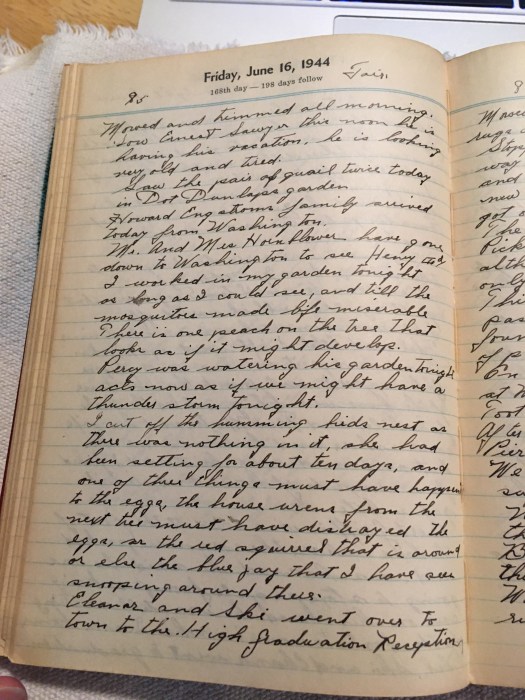 Friday, June 16, 1944
168th day — 198 days follow
85
Fair
Mowed and trimmed all morning.
Saw Ernest Sawyer this noon he is
having his vacation, he is looking
very old and tired.
Saw the pair of quail twice today
in Dot Dunlaps garden
Howard Engstroms family arrived
today from Washington.
Mr. And Mrs Hornblower have gone
down to Washington to see Henry
I worked in my garden tonight
as long as I could see, and till the
mosquitoes made life miserable
There is one peach on the tree that
looks as if it might develop.
Percy was watering his garden tonight
acts now as if we might have a
thunder storm tonight.
I cut off the humming birds nest as
there was nothing in it, she had
been setting for about ten days, and
one of three things must have happened
to the eggs, the house wrens from the
next tree must have distroyed the
eggs, or the red squirrel that is around
or else the blue jay that I have seen
snooping around there.
Eleanor and Ski went over to
town to the High graduation Reception
Mowed
rugs
Stop
way
and
new
got
The
Pick
alth
only
Th
pas
foun
of
On
at
Foot
After
Pier
We
su
th
W